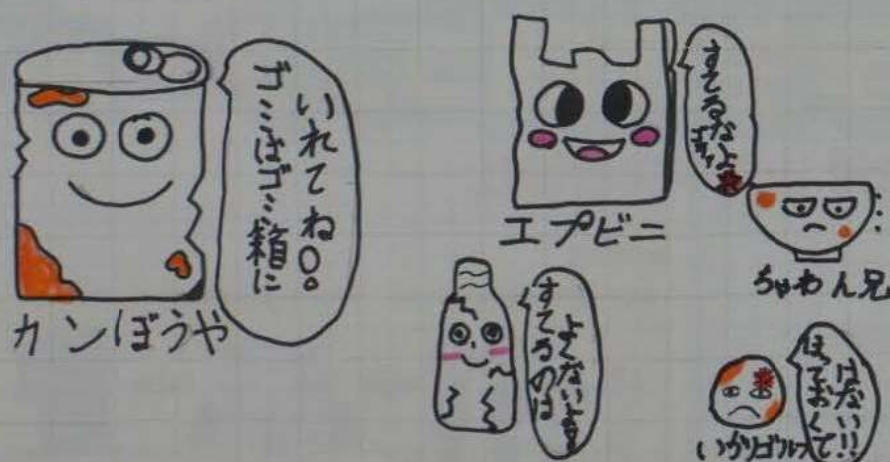 ゴミはゴミ箱に
いれてね○。
カンぼうや
すてるなよ
エプビニ
ちゃわん兄
すてるのは
よくないよ
ほっておくて
はない!!
いかりゴルフ